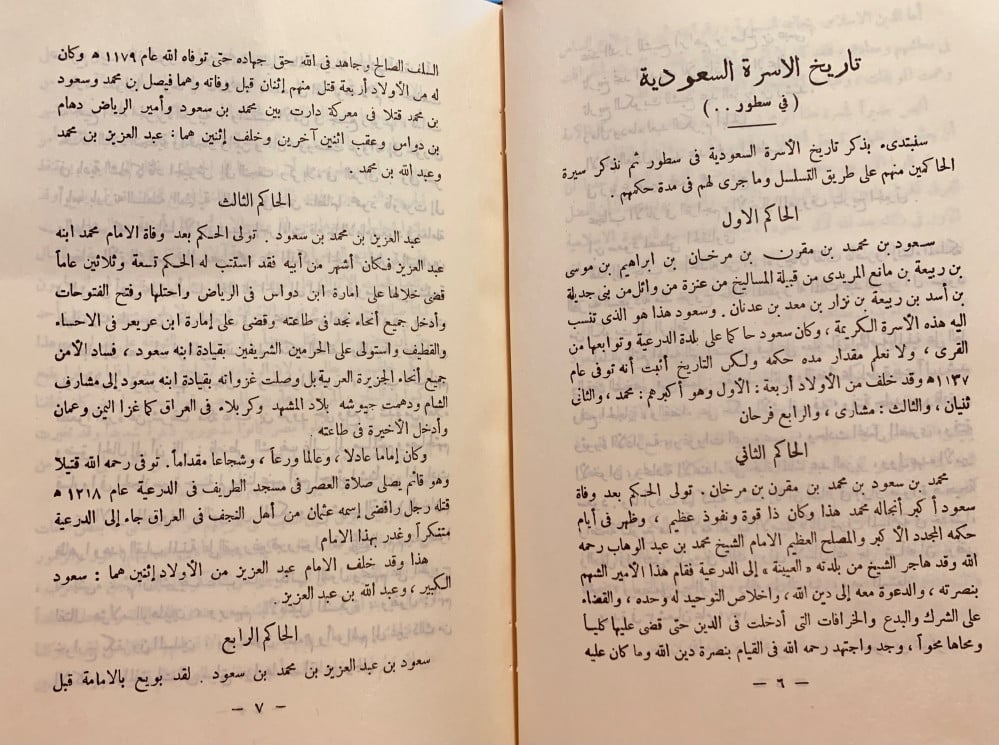 تاريخ الاسرة السعودية
( فى سطور . . )
سفبتدىء بذكر تاريخ الأسرة السعودية فى سطور ثم نذكر سيرة
الحاكمين منهم على طريق التسلسل وما جرى لهم فى مدة حكمهم .
الحاكم الاول
سعود بن محمد بن مقرن بن مرخان بن ابراهيم بن موسى
بن ربيعة بن مانع المريدى من قبيلة المساليخ من عنزة من وائل من بنى جديلة
بن أسد بن ربيعة بن نزار بن معد بن عدنان . وسعود هذا هو الذى تنسب
اليه هذه الأسرة الكريمة ، وكان سعود حاكما على بلدة الدرعية وتوابعها من
القرى ، ولا نعلم مقدار مده حكمه ولكن التاريخ أثبت أنه توفى عام
١١٣٧ ه وقد خلف من الأولاد أربعة : الأول وهو أكبرهم : محمد ، والثانى
ثنيان ، والثالث : مشارى ، والرابع فرحان
الحاكم الثاني
محمد بن سعود بن محمد بن مقرن بن مرخان . تولى الحكم بعد وفاة
سعود أكبر أنجاله محمد هذا وكان ذا قوة ونفوذ عظيم ، وظهر فى أيام
حكمه المجدد الأكبر والمصلح العظيم الامام الشيخ محمد بن عبد الوهاب رحمه
الله وقد هاجر الشيخ من بلدته « العيينة » إلى الدرعية فقام هذا الأمير الشهم
بنصرته ، والدعوة معه إلى دين الله ، واخلاص التوحيد له وحده ، والقضاء
على الشرك والبدع والخرافات التى أدخلت فى الدين حتى قضى عليها كليا
ومحاها محواً ، وجد واجتهد رحمه الله فى القيام بنصرة دين الله وما كان عليه
— ٦ —
السلف الصالح وجاهد فى الله حق جهاده حتى توفاه الله عام ١١٧٩ ه وكان
له من الأولاد أربعة قتل منهم إثنان قبل وفاته وهما فيصل بن محمد وسعود
بن محمد قتلا فى معركة دارت بين محمد بن سعود وأمير الرياض دهام
بن دواس وعقب اثنين آخرين وخلف إثنين هما : عبد العزيز بن محمد
وعبد الله بن محمد .
الحاكم الثالث
عبد العزيز بن محمد بن سعود . تولى الحكم بعد وفاة الامام محمد ابنه
عبد العزيز فكان أشهر من أبيه فقد استتب له الحكم تسعة وثلاثين عاماً
قضى خلالها على امارة ابن دواس فى الرياض واحتلها وفتح الفتوحات
وأدخل جميع أنحاء نجد فى طاعته وقضى على إمارة ابن عريعر فى الاحساء
والقطيف واستولى على الحرمين الشريفين بقيادة ابنه سعود ، فساد الأمن
جميع أنحاء الجزيرة العربية بل وصلت غزواته بقيادة ابنه سعود إلى مشارف
الشام ودهمت جيوشه بلاد المشهد وكربلاء فى العراق كما غزا اليمن وعمان
وأدخل الأخيرة فى طاعته
وكان إماما عادلا ، وعالما ورعاً ، وشجاعا مقداماً . توفى رحمه الله قتيلا
وهو قائم يصلى صلاة العصر فى مسجد الطريف فى الدرعية عام ١٢١٨ ه
قتله رجل رافضى إسمه عثمان من أهل النجف فى العراق جاء إلى الدرعية
متنكراً وغدر بهذا الامام
هذا وقد خلف الامام عبد العزيز من الأولاد إثنين هما : سعود
الكبير ، وعبد الله بن عبد العزيز .
الحاكم الرابع
سعود بن عبد العزيز بن محمد بن سعود . لقد بويع بالامامة قبل
— ٧ —